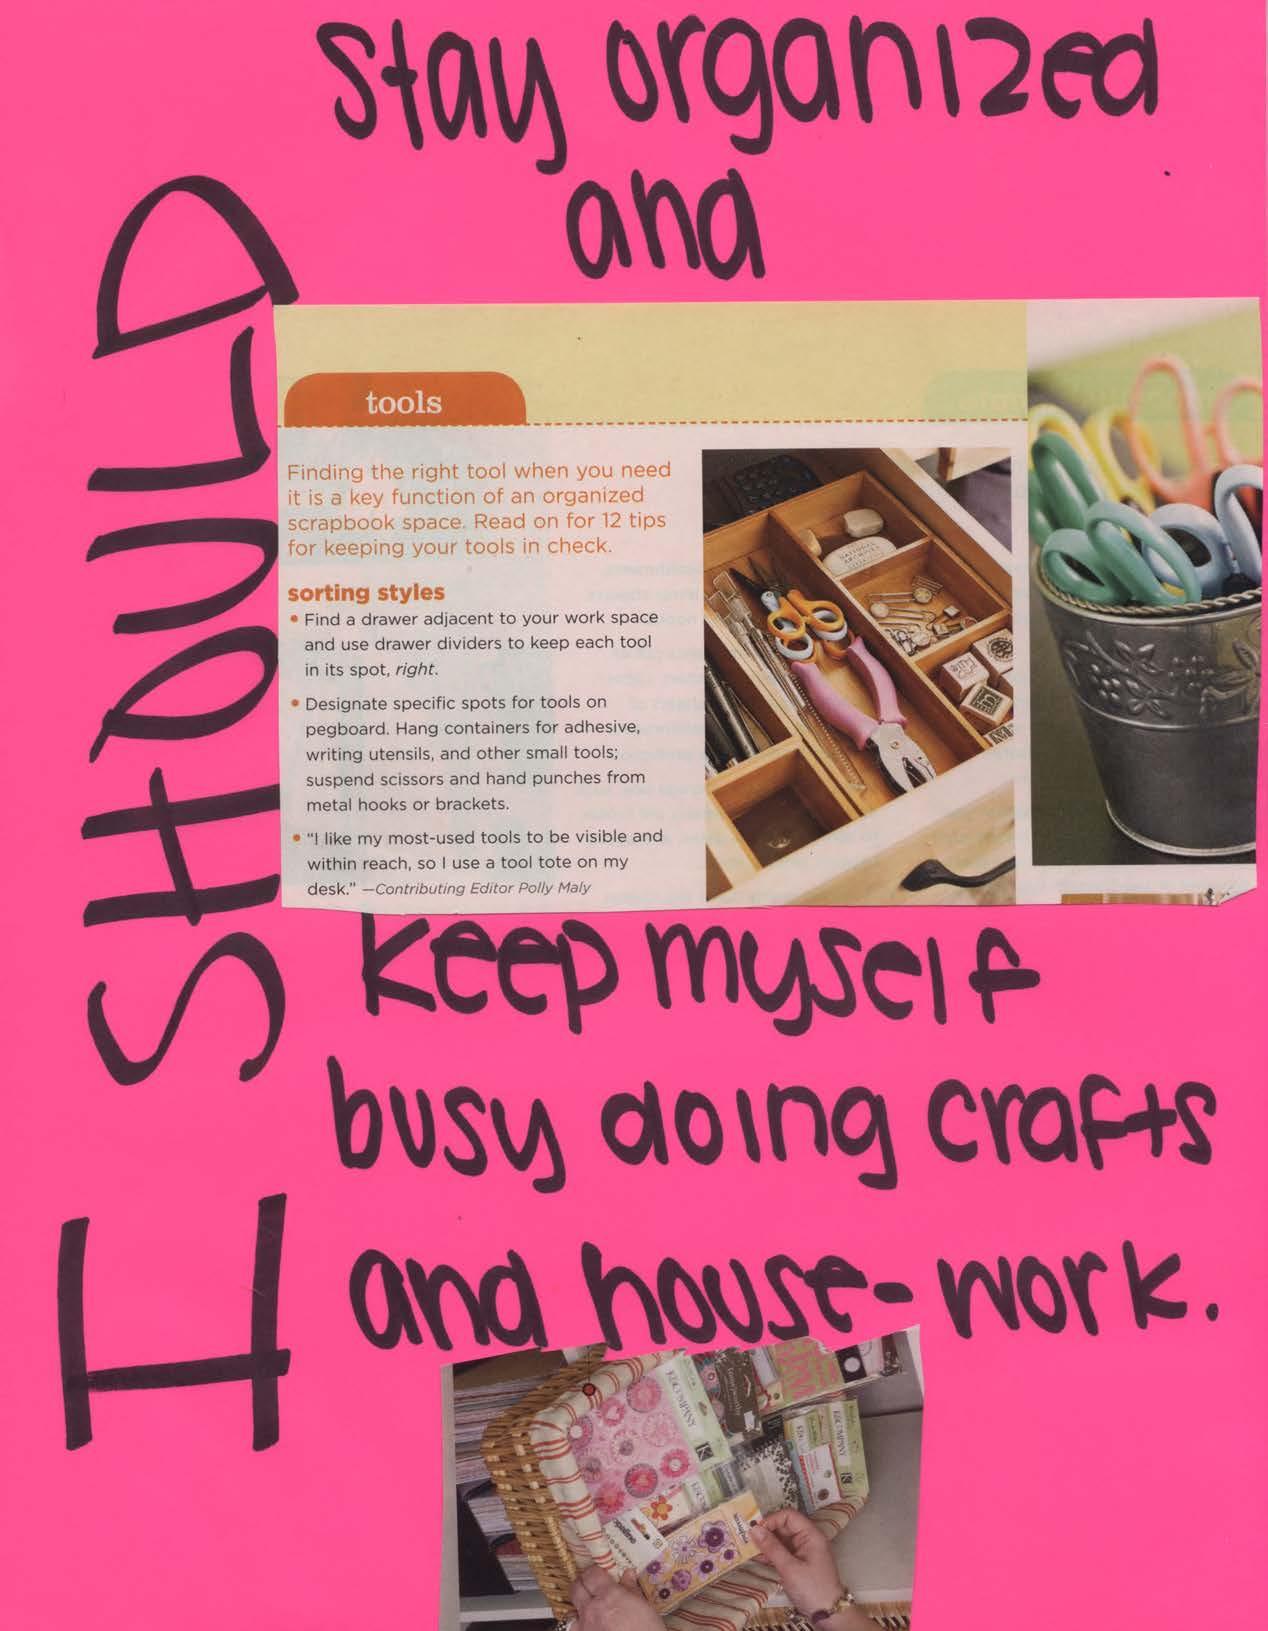 I SHOULD
stay organized
and
tools
Finding the right tool when you need
it is a key function of an organized
scrapbook space. Read on for 12 tips
for keeping your tools in check.
sorting styles
• Find a drawer adjacent to your work space
and use drawer dividers to keep each tool
in its spot, right.
• Designate specific spots for tools on
pegboard. Hang containers for adhesive,
writing utensils, and other small tools;
suspend scissors and hand punches from
metal hooks or brackets.
• “I like my most-used tools to be visible and
within reach, so I use a tool tote on my
desk.” —Contributing Editor Polly Maly
NATIONAL
ARCHIVES
keep myself
busy doing crafts
and house-work.
K&COMPANY
K
K&COMPANY
K